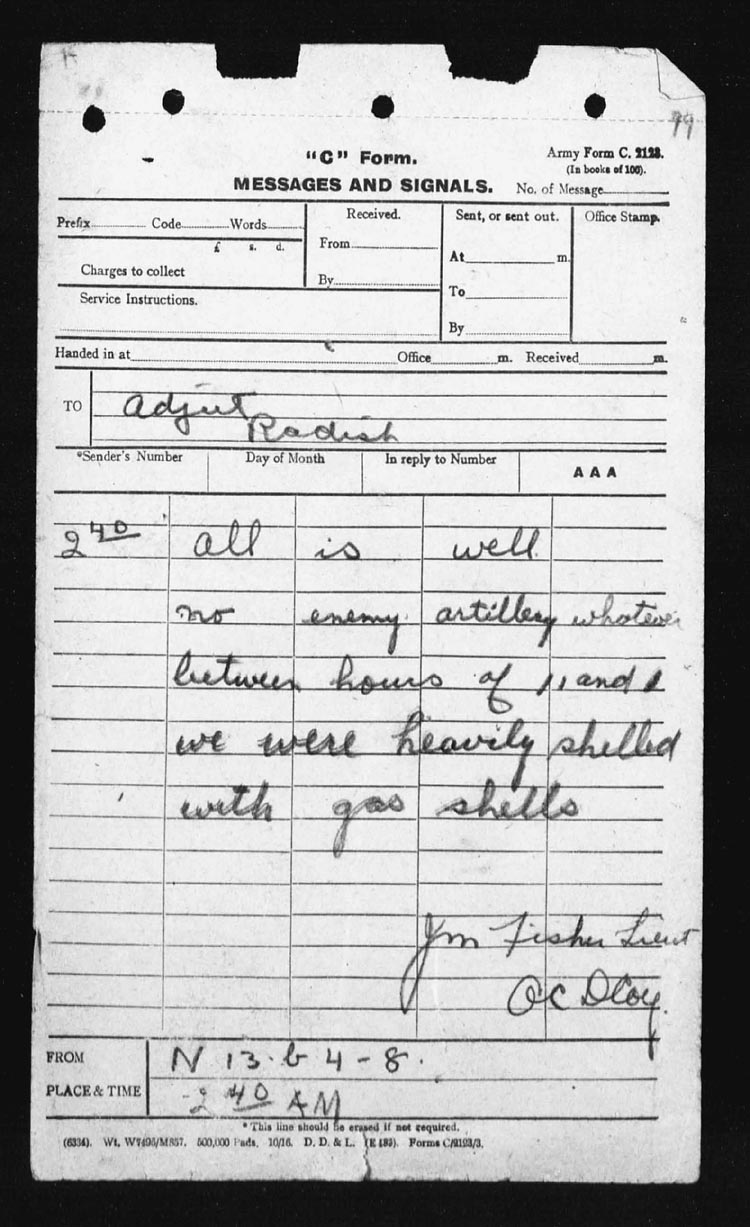 99
"C" Form.
Army Form C. 2123.
(In books of 100).
MESSAGES AND SIGNALS.
No. of Message
Prefix Code Words
£ s. d.
Charges to collect
Service Instructions.
Received.
From
By
Sent, or sent out.
At m.
To
By
Office Stamp.
Handed in at Office m. Received m.
TO Adjut
Radish
*Sender's Number Day of Month In reply to Number AAA
2 40 all is well
no enemy artillery whatever
between hours of 11 and 1
we were heavily shelled
with gas shells
Jm Fisher Lieut
OC D Coy.
FROM N 13. b 4 - 8.
PLACE & TIME 2 40 AM
* This line should be erased if not required.
(6334). Wt. W7496/M857. 500,000 Pads. 10/16. D. D. & L. (E 489). Forms C/2123/3.